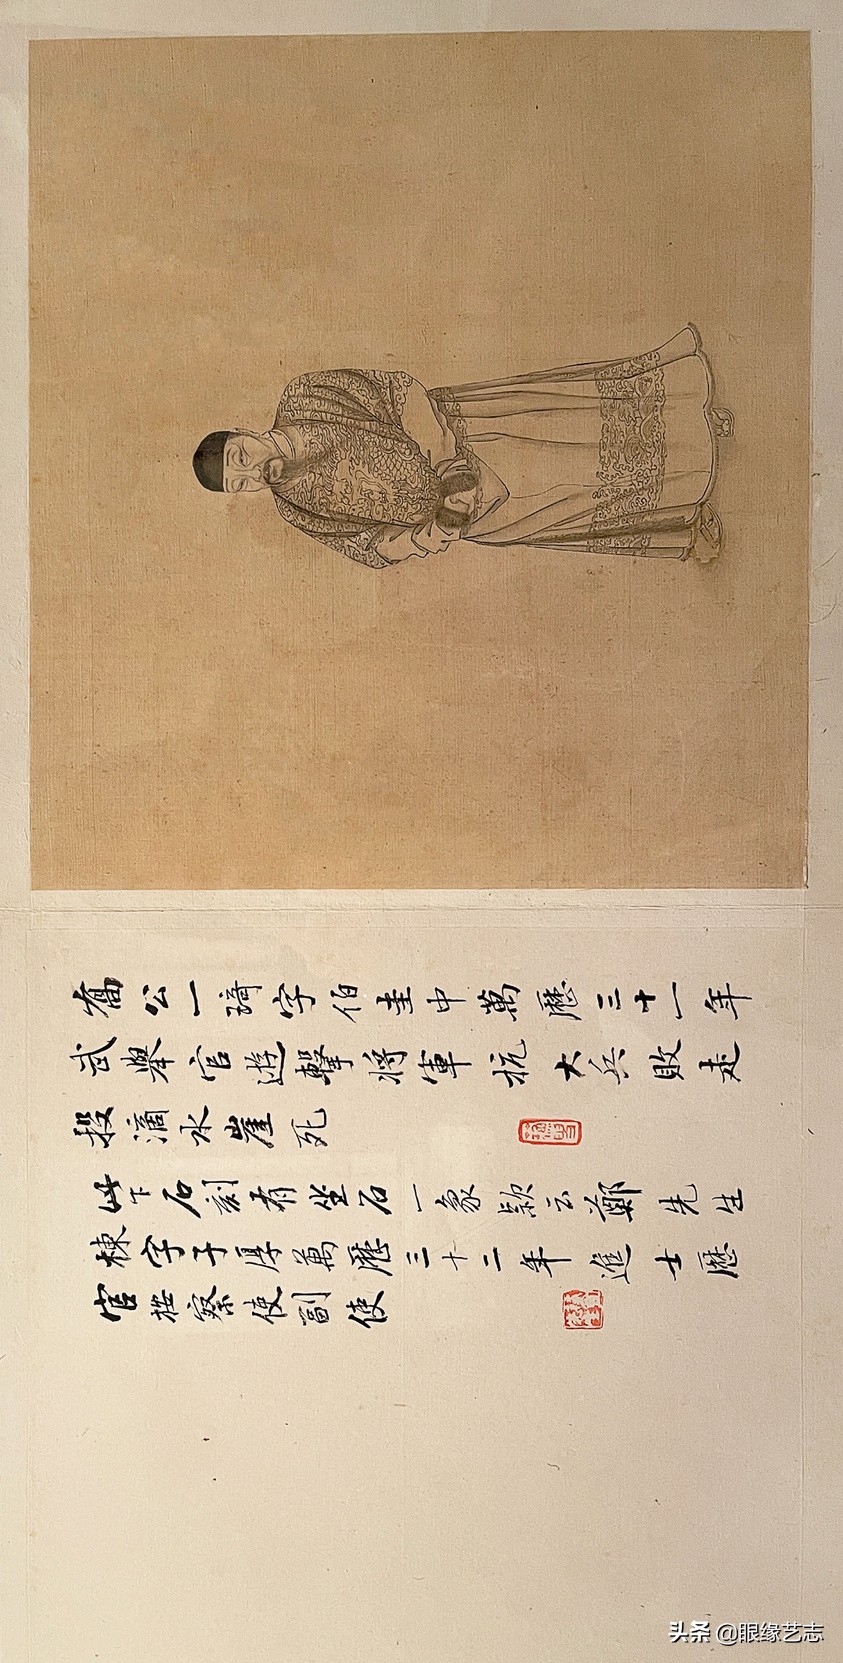 喬公一琦字伯圭中萬歷三十一年
武舉官遊擊將軍抗大兵敗走
投滴水崖死
此下石刻有坐石一象款云鄭先生
棟字子厚萬歷三十二年進士歷
官按察使副使
头条 @眼缘艺志